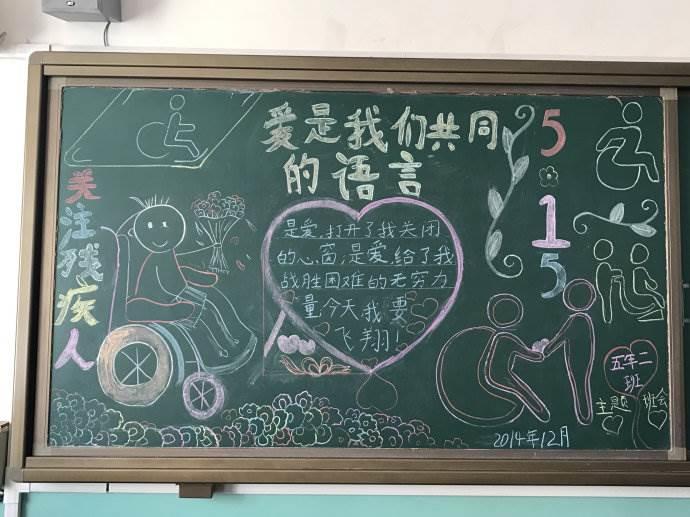 爱是我们共同
的语言
关注残疾人
是爱,打开了我关闭
的心窗;是爱,给了我
战胜困难的无穷力
量,今天,我要
飞翔!
5·15
五年二
班
主题班会
2014年12月